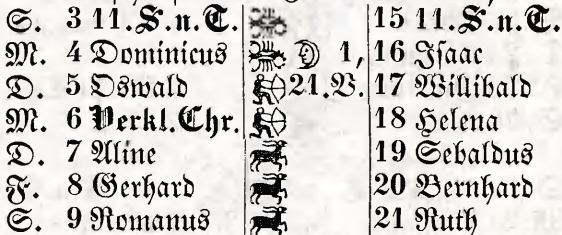 S. 3 11. S. n. T. 15 11. S. n. T.
M. 4 Dominicus 1, 16 Isaac
D. 5 Oswald 21. V. 17 Willibald
M. 6 Verkl. Chr. 18 Helena
D. 7 Aline 19 Sebaldus
F. 8 Gerhard 20 Bernhard
S. 9 Romanus 21 Ruth